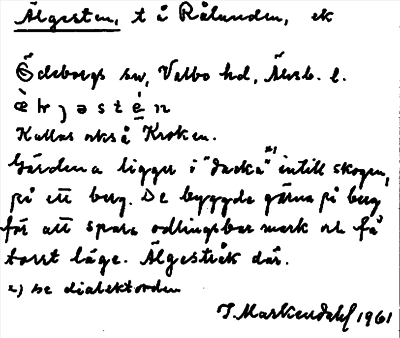 Älgesten, t å Rålanden, ek
Ödeborgs sn, Valbo hd, Älvsb. l.
Kallas också Kroken.
Gårdena ligger i "dacka" intill skogen,
på ett berg. De byggde gärna på berg
för att spara odlingsbar mark och få
torrt läge. Älgestråk där.
se dialektorden
T. Markendahl 1961